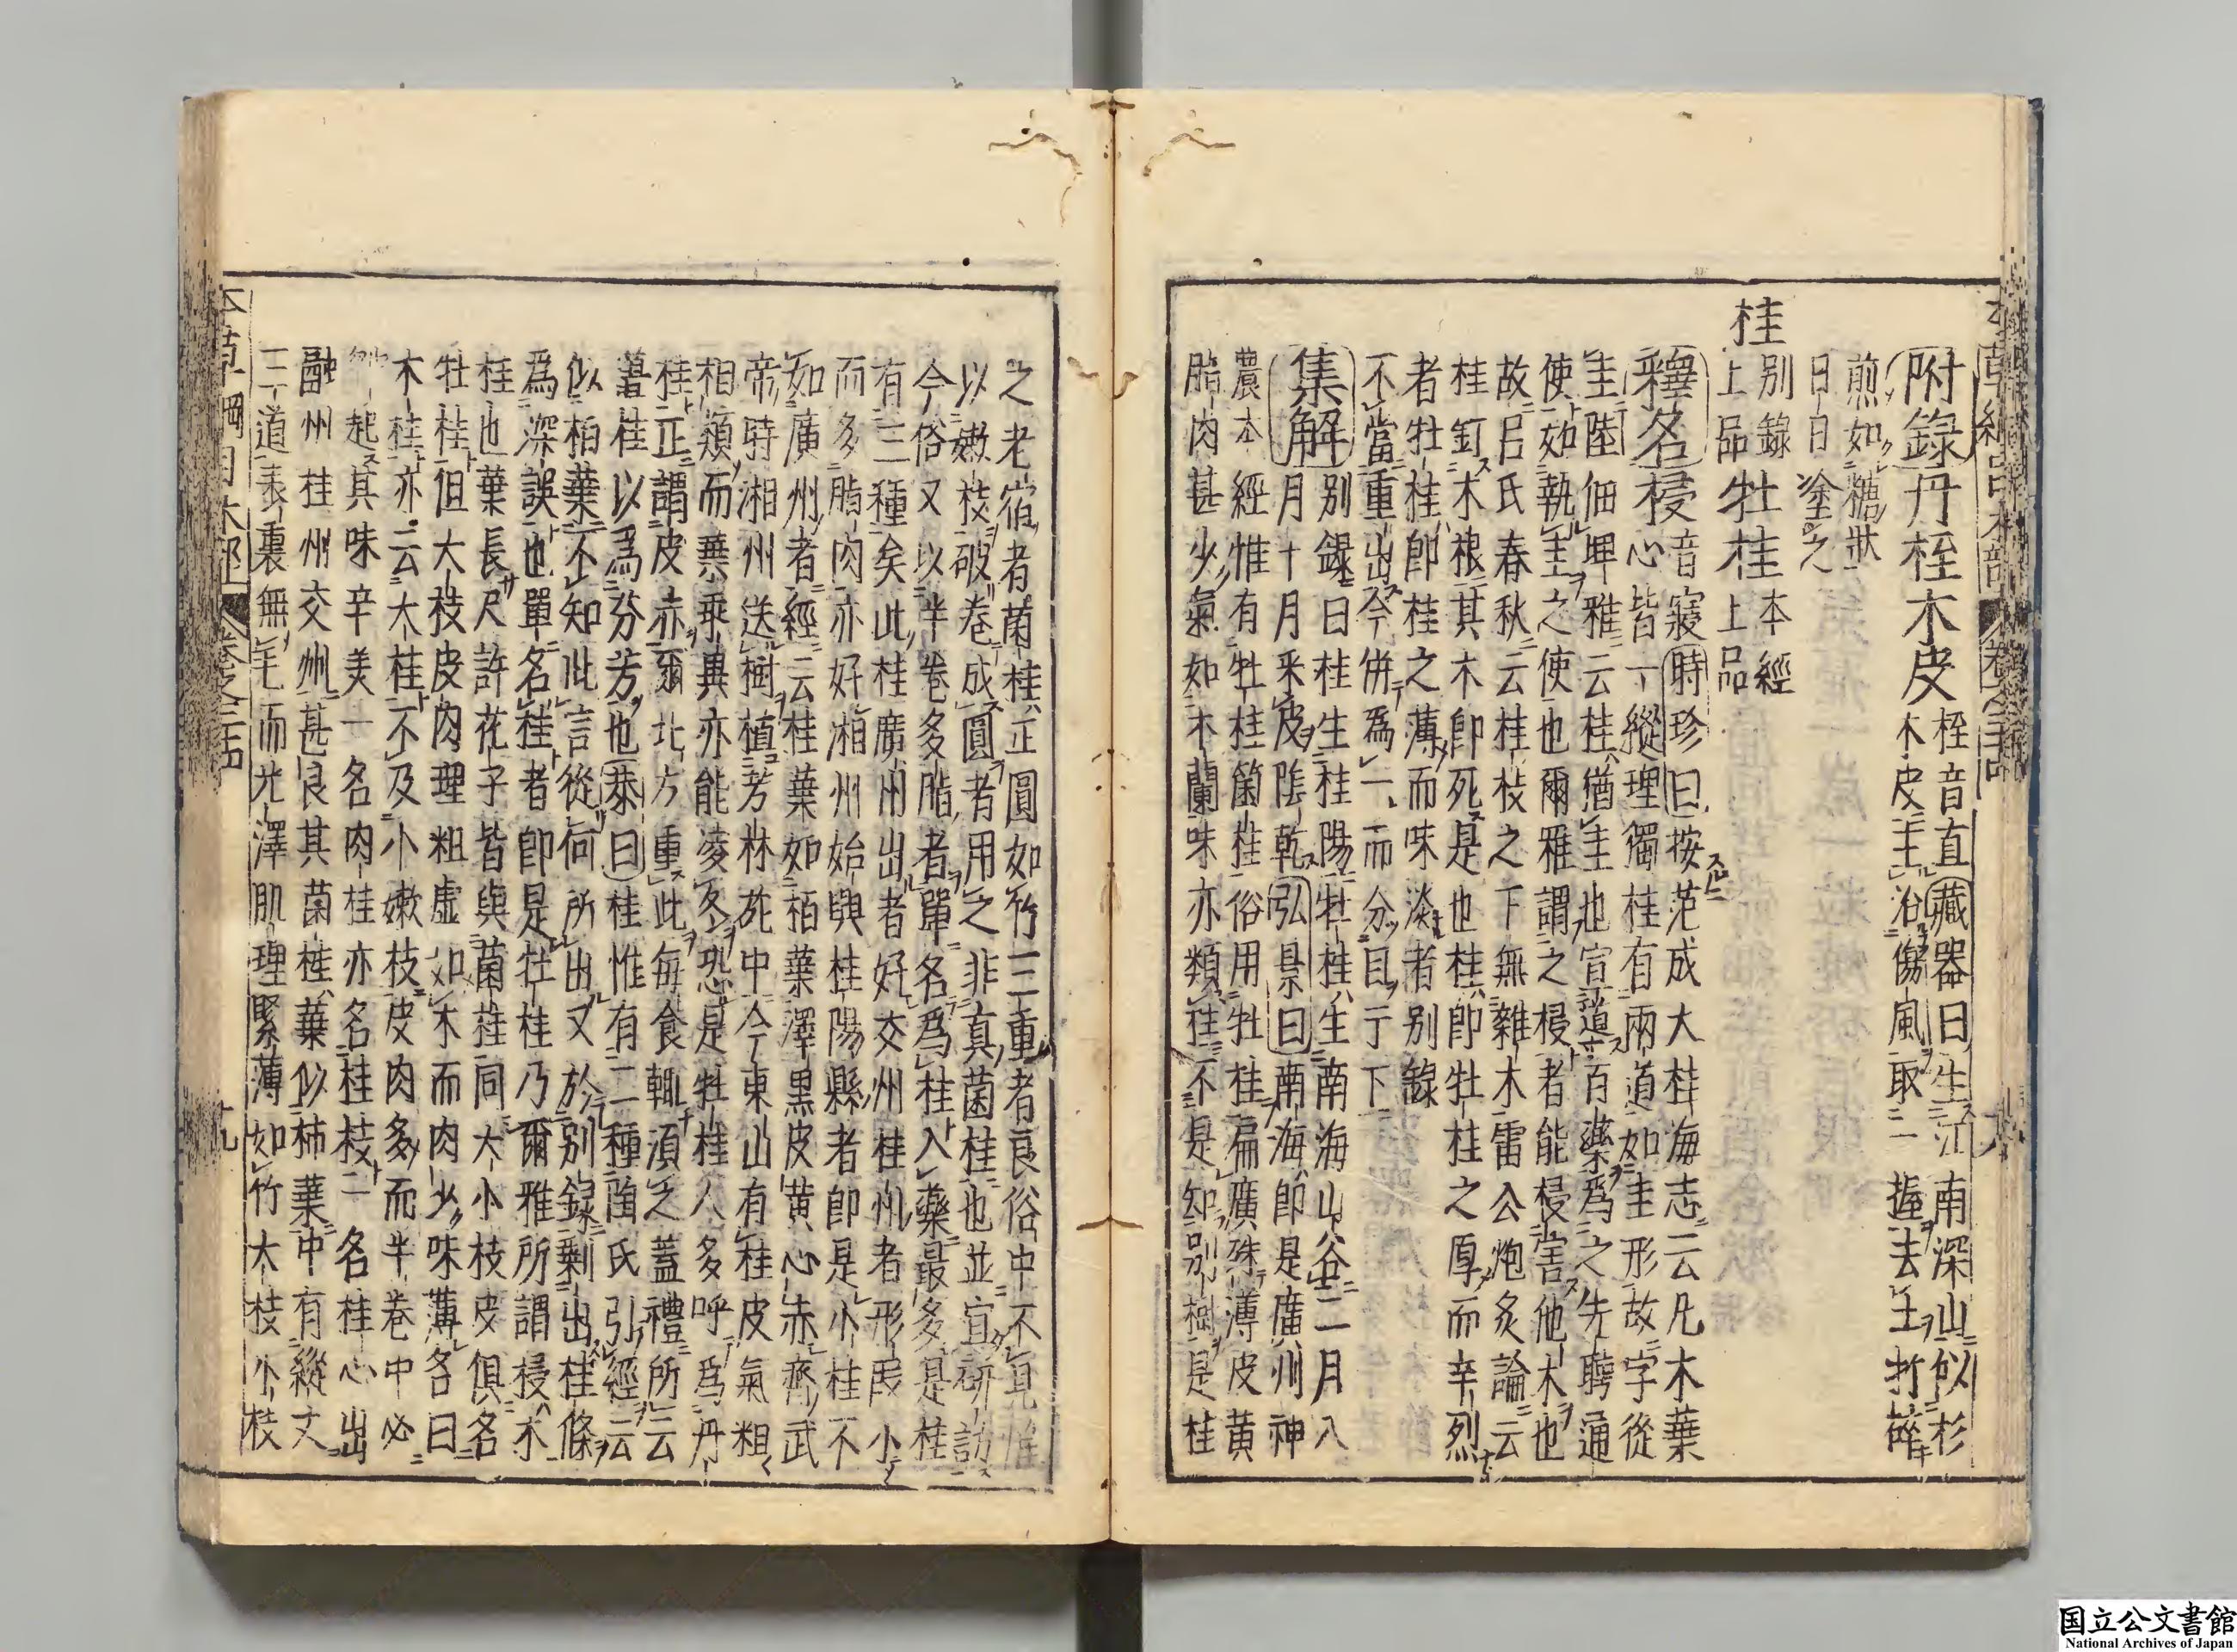 附錄丹桎木皮桎音直藏器曰生江南深山似杉
木皮主治癘風取一握去土打碎
煎如糖狀
日日塗之
桂別錄牡桂本經
上品牡桂上品
釋名梫音寢時珍曰按范成大桂海志云凡木葉
心皆一縱理獨桂有兩道如圭形故字從
圭陸佃埤雅云桂猶圭也宣導百藥爲之先聘通
使如執圭之使也爾雅謂之梫者能梫害他木也
故呂氏春秋云桂枝之下無雜木雷公炮炙論云
桂釘木根其木卽死是也桂卽牡桂之厚而辛烈
者牡桂卽桂之薄而味淡者別錄
不當重出今併爲一而分目于下
集解別錄曰桂生桂陽牡桂生南海山谷二月八
月十月采皮陰乾弘景曰南海卽是廣州神
農本經惟有牡桂菌桂俗用牡桂扁廣殊薄皮黃
脂肉甚少氣如木蘭味亦類桂不知是別樹是桂
之老宿者菌桂正圓如竹三重者良俗中不見惟
以嫩枝破卷成圓者用之非真菌桂也並宜研訪
今俗又以半卷多脂者單名爲桂入藥最多是桂
有三種矣此桂廣州出者好交州桂州者形段小
而多脂肉亦好湘州始興桂陽縣者卽是小桂不
如廣州者經云桂葉如栢葉澤黑皮黃心赤齊武
帝時湘州送樹植芳林苑中今東山有桂皮氣粗
相類而葉乖異亦能凌冬恐是牡桂人多呼爲丹
桂正謂皮赤爾北方重此每食輒須之蓋禮所云
薑桂以爲芬芳也恭曰桂惟有二種陶氏引經云
似栢葉不知此言從何所出又於別錄剩出桂條
爲深誤也單名桂者卽是牡桂乃爾雅所謂梫木
桂也葉長尺許花子皆與菌桂同大小枝皮俱名
牡桂但大枝皮肉理粗虛如木而肉少味薄名曰
木桂亦云大桂不及小嫩枝皮肉多而半卷中必
起其味辛美一名肉桂亦名桂枝一名桂心出
融州桂州交州甚良其菌桂葉似柿葉中有縱文
三道表裏無毛而光澤肌理緊薄如竹大枝小枝
本草綱目木部 卷之三十四
國立公文書館
National Archives of Japan